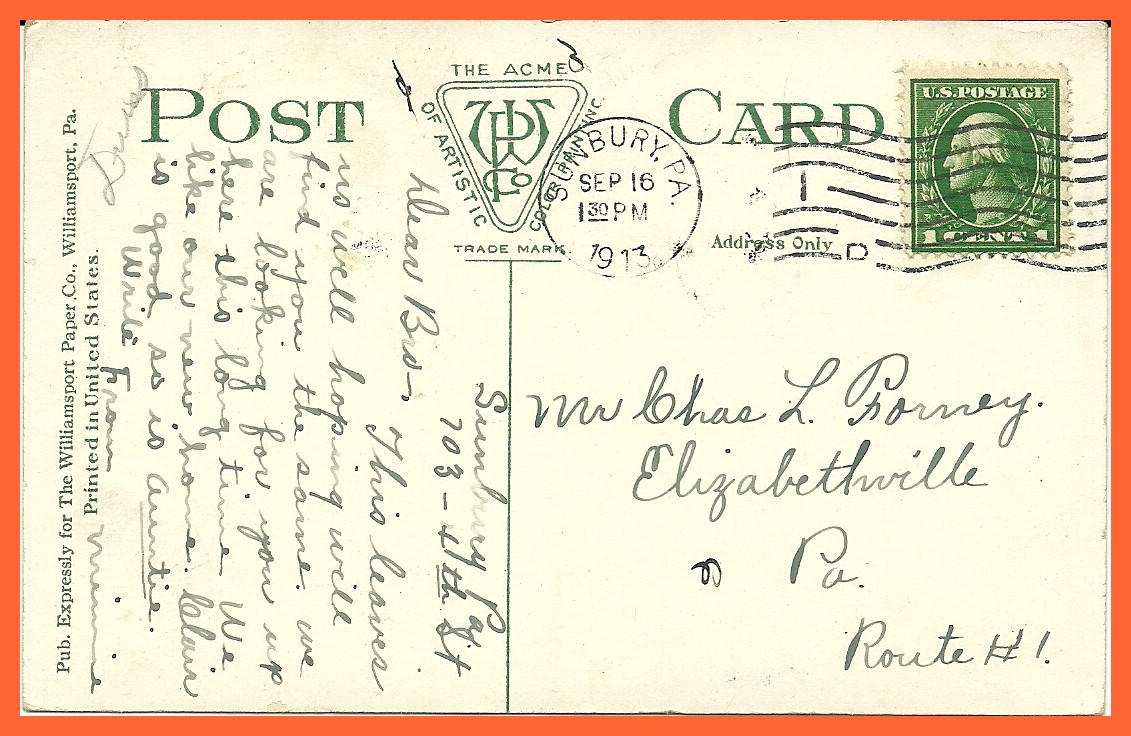 POST CARD
THE ACME
OF ARTISTIC
COLOR PAINTING
WPCo
TRADE MARK
SUNBURY, PA.
SEP 16
1 30 PM
1913
U.S. POSTAGE
1 CENTS 1
Address Only
Sunbury Pa
703 - 4th St
Dear Bro-,
This leaves
us well hoping will
find you the same. we
are looking for you up
here this long time We
like our new home. Clair
is good so is auntie.
Write
From Minnie
Mr Chas L. Forney.
Elizabethville
Pa.
Route # 1.
Pub. Expressly for The Williamsport Paper Co., Williamsport, Pa.
Printed in United States.